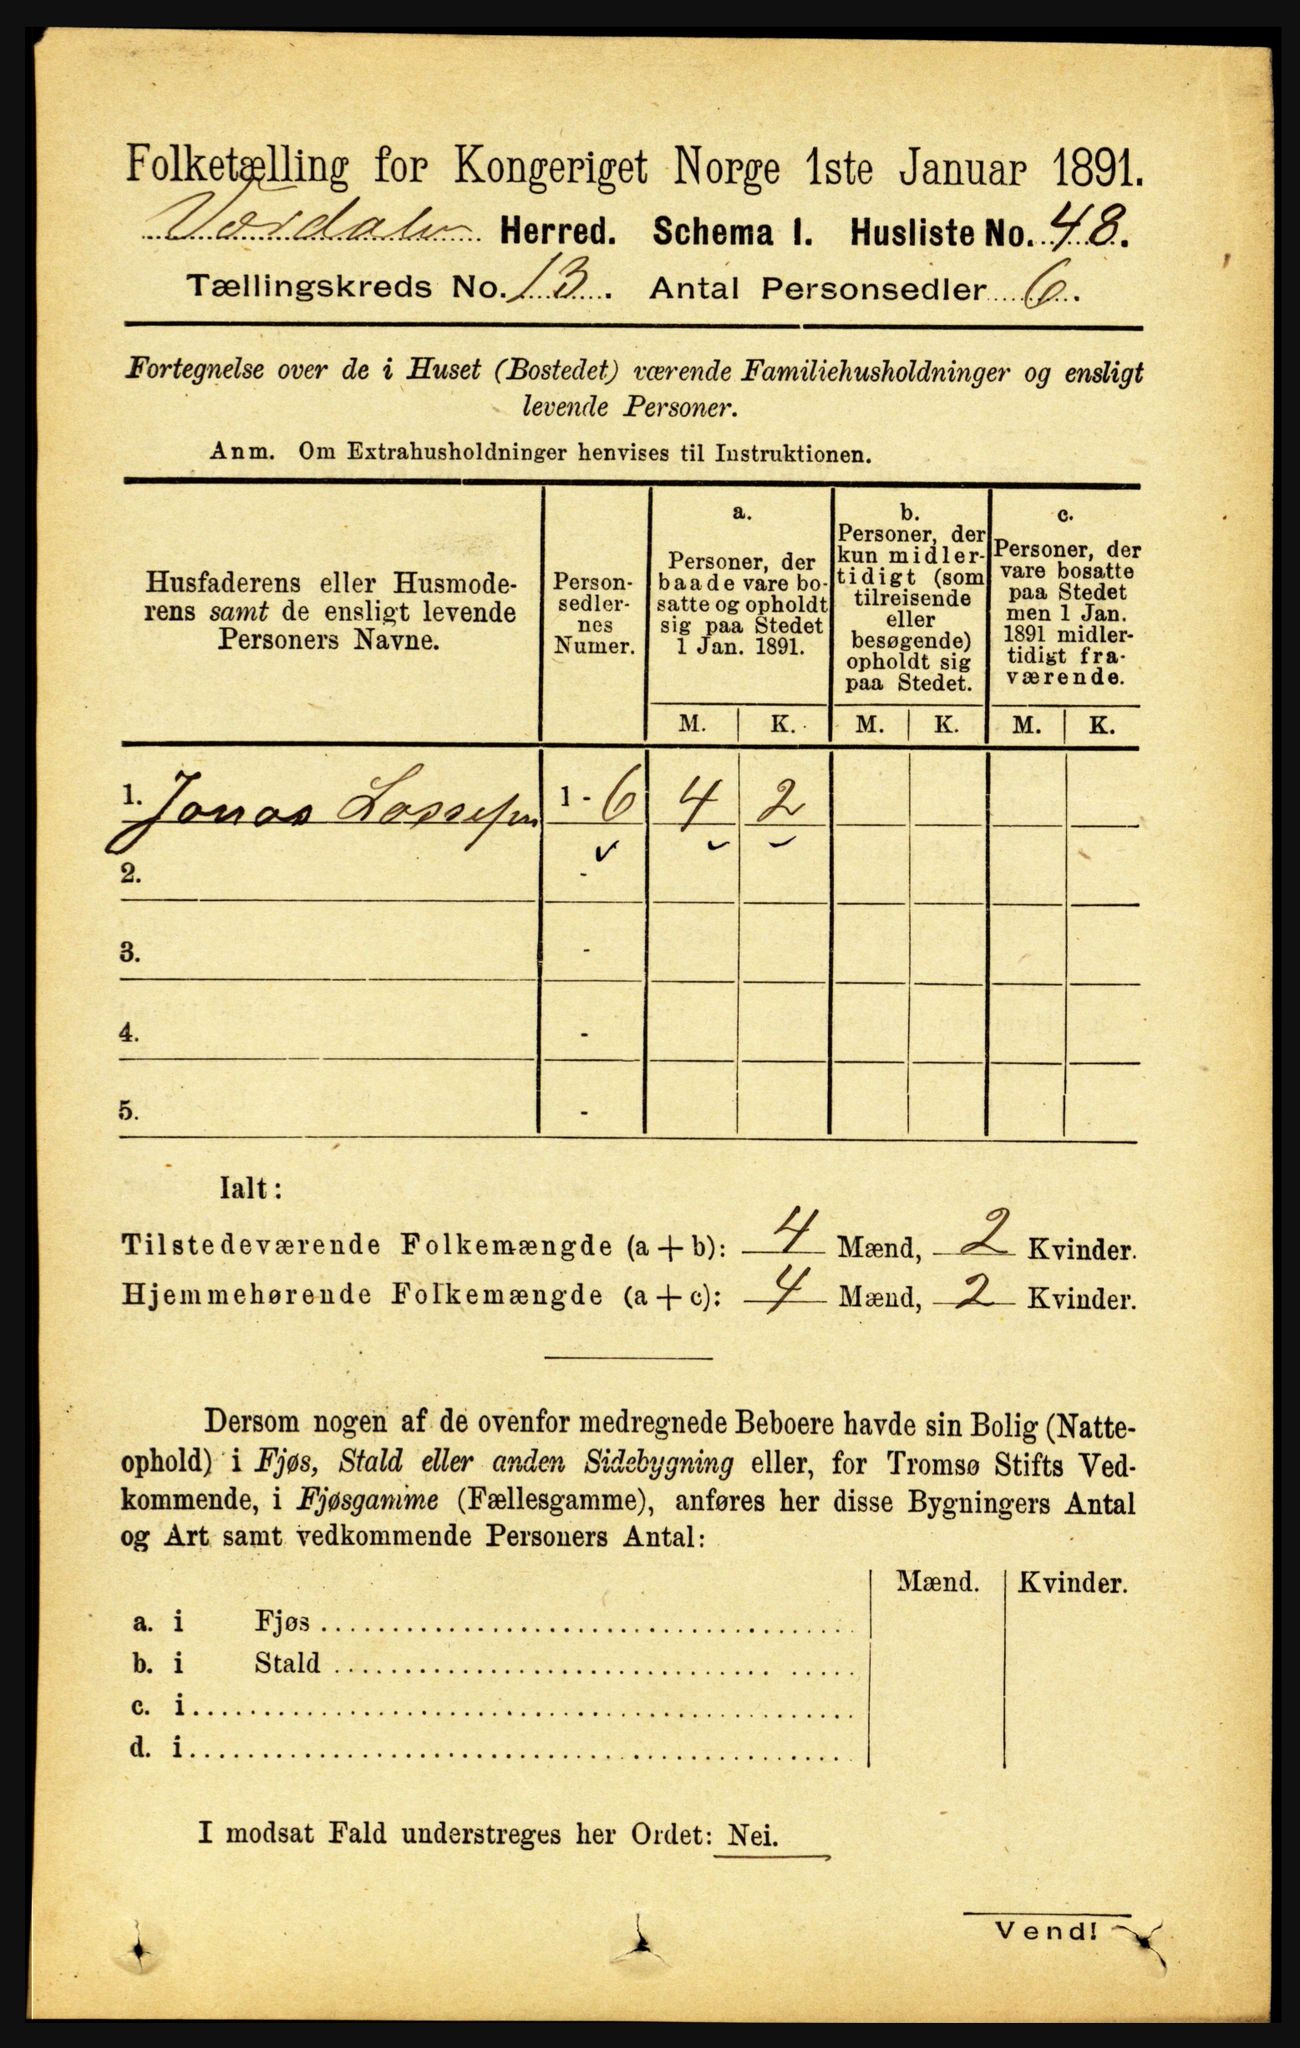 Folketælling for Kongeriget Norge 1ste Januar 1891.
Herred. Schema I. Husliste No. 48.
Tællingskreds No. 13. Antal Personsedler 6.
Fortegnelse over de i Huset (Bostedet) værende Familiehusholdninger og ensligt
levende Personer.
Anm. Om Extrahusholdninger henvises til Instruktionen.
Husfaderens eller Husmode-
rens samt de ensligt levende
Personers Navne.
Person-
sedler-
nes
Numer.
a.
Personer, der
baade vare bo-
satte og opholdt
sig paa Stedet
1 Jan. 1891.
b.
Personer, der
kun midler-
tidigt (som
tilreisende
eller
besøgende)
opholdt sig
paa Stedet.
c.
Personer, der
vare bosatte
paa Stedet
men 1 Jan.
1891 midler-
tidigt fra-
værende.
M. K. M. K. M. K.
1. Jonas 1 - 6 4 2
2. -
3. -
4. -
5. -
Ialt:
Tilstedeværende Folkemængde (a + b): 4 Mænd, 2 Kvinder.
Hjemmehørende Folkemængde (a + c): 4 Mænd, 2 Kvinder.
Dersom nogen af de ovenfor medregnede Beboere havde sin Bolig (Natte-
ophold) i Fjøs, Stald eller anden Sidebygning eller, for Tromsø Stifts Ved-
kommende, i Fjøsgamme (Fællesgamme), anføres her disse Bygningers Antal
og Art samt vedkommende Personers Antal:
Mænd. Kvinder.
a. i Fjøs
b. i Stald
c. i
d. i
I modsat Fald understreges her Ordet: Nei.
Vend!